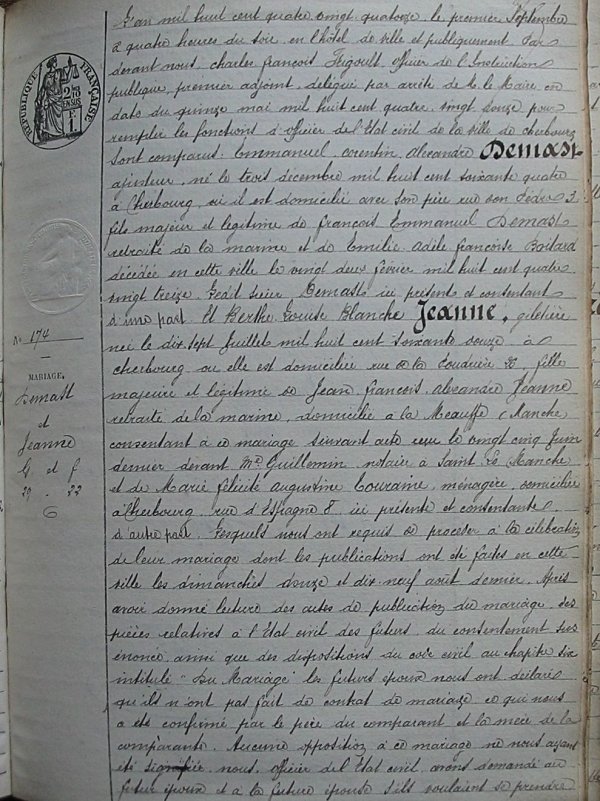 L'an mil huit cent quatre vingt quatorze le premier Septembre
à quatre heures du soir en l'hôtel de ville et publiquement Par
devant nous, Charles François officier de l'Instruction
publique, premier adjoint, délégué par arrêté de M. le Maire en
date du quinze mai mil huit cent quatre vingt douze pour
remplir les fonctions d'officier de l'Etat civil de la ville de Cherbourg
Sont comparus: Emmanuel, Corentin, Alexandre Demast
ajusteur, né le trois décembre mil huit cent soixante quatre
à Cherbourg, où il est domicilié avec son père rue 3
fils majeur et légitime de François Emmanuel Demast
retraité de la marine et de Emilie Adèle Françoise
décédée en cette ville le vingt deux février mil huit cent quatre
vingt treize Ledit sieur Demast ici présent et consentant
d'une part. Et Berthe Louise Blanche Jeanne, giletière
née le dix sept Juillet mil huit cent soixante douze à
Cherbourg ou elle est domiciliée rue de la fille
majeure et légitime de Jean François Alexandre Jeanne
retraité de la marine, domicilié à la Meauffe (Manche
consentant à ce mariage suivant acte reçu le vingt cinq Juin
dernier devant Me Guillemin, notaire à Saint Lô Manche
et de Marie Félicité Augustine Touraine, ménagère, domiciliée
à Cherbourg, rue d'Espagne 8, ici présente et consentante
d'autre part. Lesquels nous ont requis de procéder à la célébration
de leur mariage dont les publications ont été faites en cette
ville les dimanches douze et dix-neuf août dernier. Après
avoir donné lecture des actes de publication du mariage, des
pièces relatives à l'Etat civil des futurs, du consentement sus
énoncé, ainsi que des dispositions du code civil au chapitre six
intitulé "Du Mariage" les futurs époux nous ont déclaré
qu'ils n'ont pas fait de contrat de mariage ce qui nous
a été confirmé par le père du comparant et la mère de la
comparante. Aucune opposition à ce mariage ne nous ayant
été signifiée nous, officier de l'Etat civil, avons demandé au
futur époux et à la future épouse s'ils voulaient se prendre
RÉPUBLIQUE FRANÇAISE
No 174
MARIAGE.
Demast
et
Jeanne
G et f
29 . 22
6